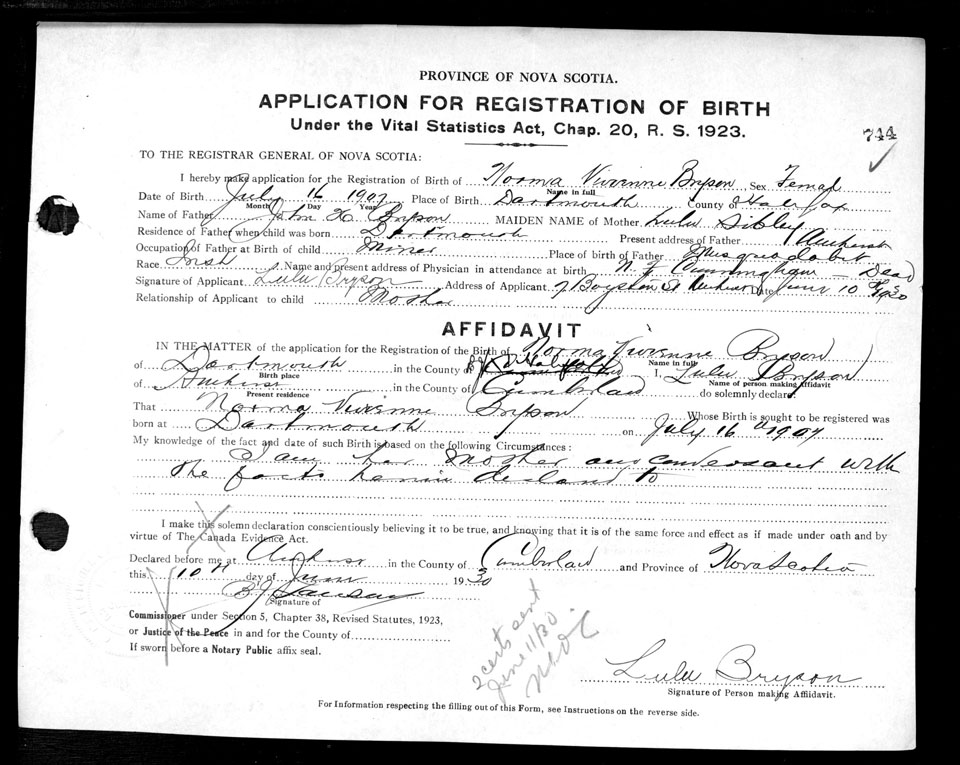 PROVINCE OF NOVA SCOTIA.
APPLICATION FOR REGISTRATION OF BIRTH
Under the Vital Statistics Act, Chap. 20, R. S. 1923.
744
TO THE REGISTRAR GENERAL OF NOVA SCOTIA:
I hereby make application for the Registration of Birth of Norma Vivienne Bryson Sex Female
Name in full
Date of Birth July 16 1907 Place of Birth Dartmouth County of Halifax
Month Day Year
Name of Father John H. Bryson MAIDEN NAME of Mother Lulu Sibley
Residence of Father when child was born Dartmouth Present address of Father Amherst
Occupation of Father at Birth of child Miner Place of birth of Father Musquodobit
Race Irish Name and present address of Physician in attendance at birth N. F. Cunningham – Dead
Signature of Applicant Lulu Bryson Address of Applicant 7 Boyston St Amherst Date June 10 1930
Relationship of Applicant to child Mother
AFFIDAVIT
IN THE MATTER of the application for the Registration of the Birth of Norma Vivienne Bryson
Name in full
of Dartmouth in the County of Halifax I, Lulu Bryson
Birth place Name of person making Affidavit
of Amherst in the County of Cumberland do solemnly declare:
Present residence
That Norma Vivienne Bryson Whose Birth is sought to be registered was
born at Dartmouth on July 16th 1907
My knowledge of the fact and date of such Birth is based on the following Circumstances:
I am her Mother and conversant with
the facts herein declared to
I make this solemn declaration conscientiously believing it to be true, and knowing that it is of the same force and effect as if made under oath and by
virtue of The Canada Evidence Act.
Declared before me at Amherst in the County of Cumberland and Province of Nova Scotia
this 10th day of June 1930
Signature of
Commissioner under Section 5, Chapter 38, Revised Statutes, 1923,
or Justice of the Peace in and for the County of
If sworn before a Notary Public affix seal.
2 certs sent
June 11/30
Lulu Bryson
Signature of Person making Affidavit.
For Information respecting the filling out of this Form, see Instructions on the reverse side.